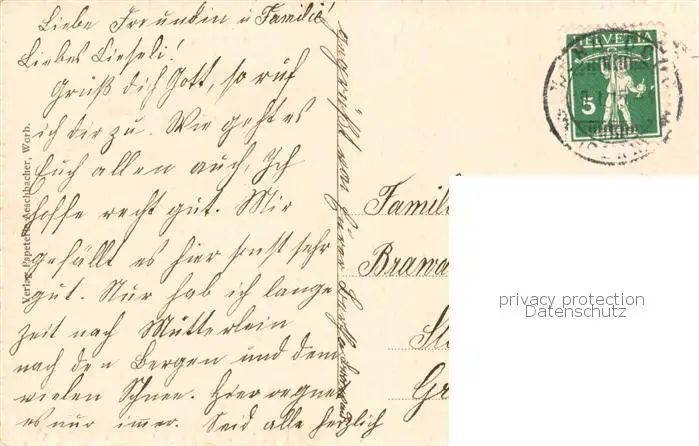 Liebe Freundin u Familie!
Liebes Lieseli!
Grüß dich Gott, so ruf
ich dir zu. Wie geht es
Euch allen auch, Ich
hoffe recht gut. Mir
gefällt es hier sonst sehr
gut. Nur hab ich lange
Zeit nach Mütterlein
nach den Bergen und dem
vielen Schnee. Hier regnet
es nur immer. Seid alle herzlich
gegrüßt von Eurer Bertha
Verlag Papeterie Aeschbacher, Worb.
HELVETIA
5
Famili
Brawa
Gr
privacy protection
Datenschutz